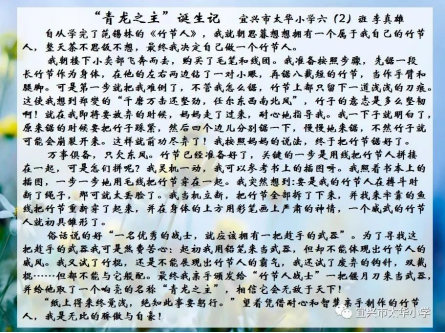 “青龙之主”诞生记 宜兴市太华小学六（2）班 李真雄
自从学完了范锡林的《竹节人》，我就朝思暮想想拥有一个属于我自己的竹节
人，整天茶不思饭不想，最终我决定自己做一个竹节人。
我朝楼下小卖部飞奔而去，购买了毛笔和线团。我准备按照步骤，先锯一段
长竹节作为身体，在他的左右两边钻了一对小眼，再锯八截短的竹节，当作手臂和
腿脚。可是第一步就把我难倒了，不管我怎么锯，竹节上都只留下一道浅浅的刀痕。
这使我想到郑燮的“千磨万击还坚劲，任尔东西南北风”，竹子的意志是多么坚韧
啊！就在我即将要放弃的时候，妈妈走了过来，耐心地指导我。我一下子就明白了，
原来锯的时候要把竹子踩紧，然后四个边儿分别锯一下，慢慢地来锯，不然竹子就
可能会崩裂开来。这样就前功尽弃了！我按照妈妈的说法，终于把竹节锯好了。
万事俱备，只欠东风。竹节已经准备好了，关键的一步是用线把竹节人拼接
在一起，可是怎们拼呢？我灵机一动，我可以参考书上的插图呀。我照着书本上的
插图，一步一步地用毛线把竹节串在一起。我突然想到：要是我的竹节人在搏斗时
断了绳子，那可就太丢脸了。我当机立断，把竹节全部拆了下来，并找来牢靠的鱼
线把竹节重新穿了起来，并在身体的上方用彩笔画上严肃的神情，一个威武的竹节
人就初具雏形了。
俗话说的好“一名优秀的战士，就应该拥有一把趁手的武器”。为了寻找这
把趁手的武器我可是煞费苦心：起初我用铅笔来当武器，但却不能体现出竹节人的
威风。我又试了竹棍，还是不能显现出竹节人的霸气，我还试了废弃的钩针，双截
棍……但却都不能与它般配。最终我亲手颁发给“竹节人战士”一把锯月刀来当武器，
并给他取了一个响亮的名猕“青龙之主”，相信它会无敌于天下！
“纸上得来终觉浅，绝知此事要躬行。”望着凭借耐心和智慧亲手制作的竹节
人，我是无比的骄傲与自豪！
宜兴市太华小学